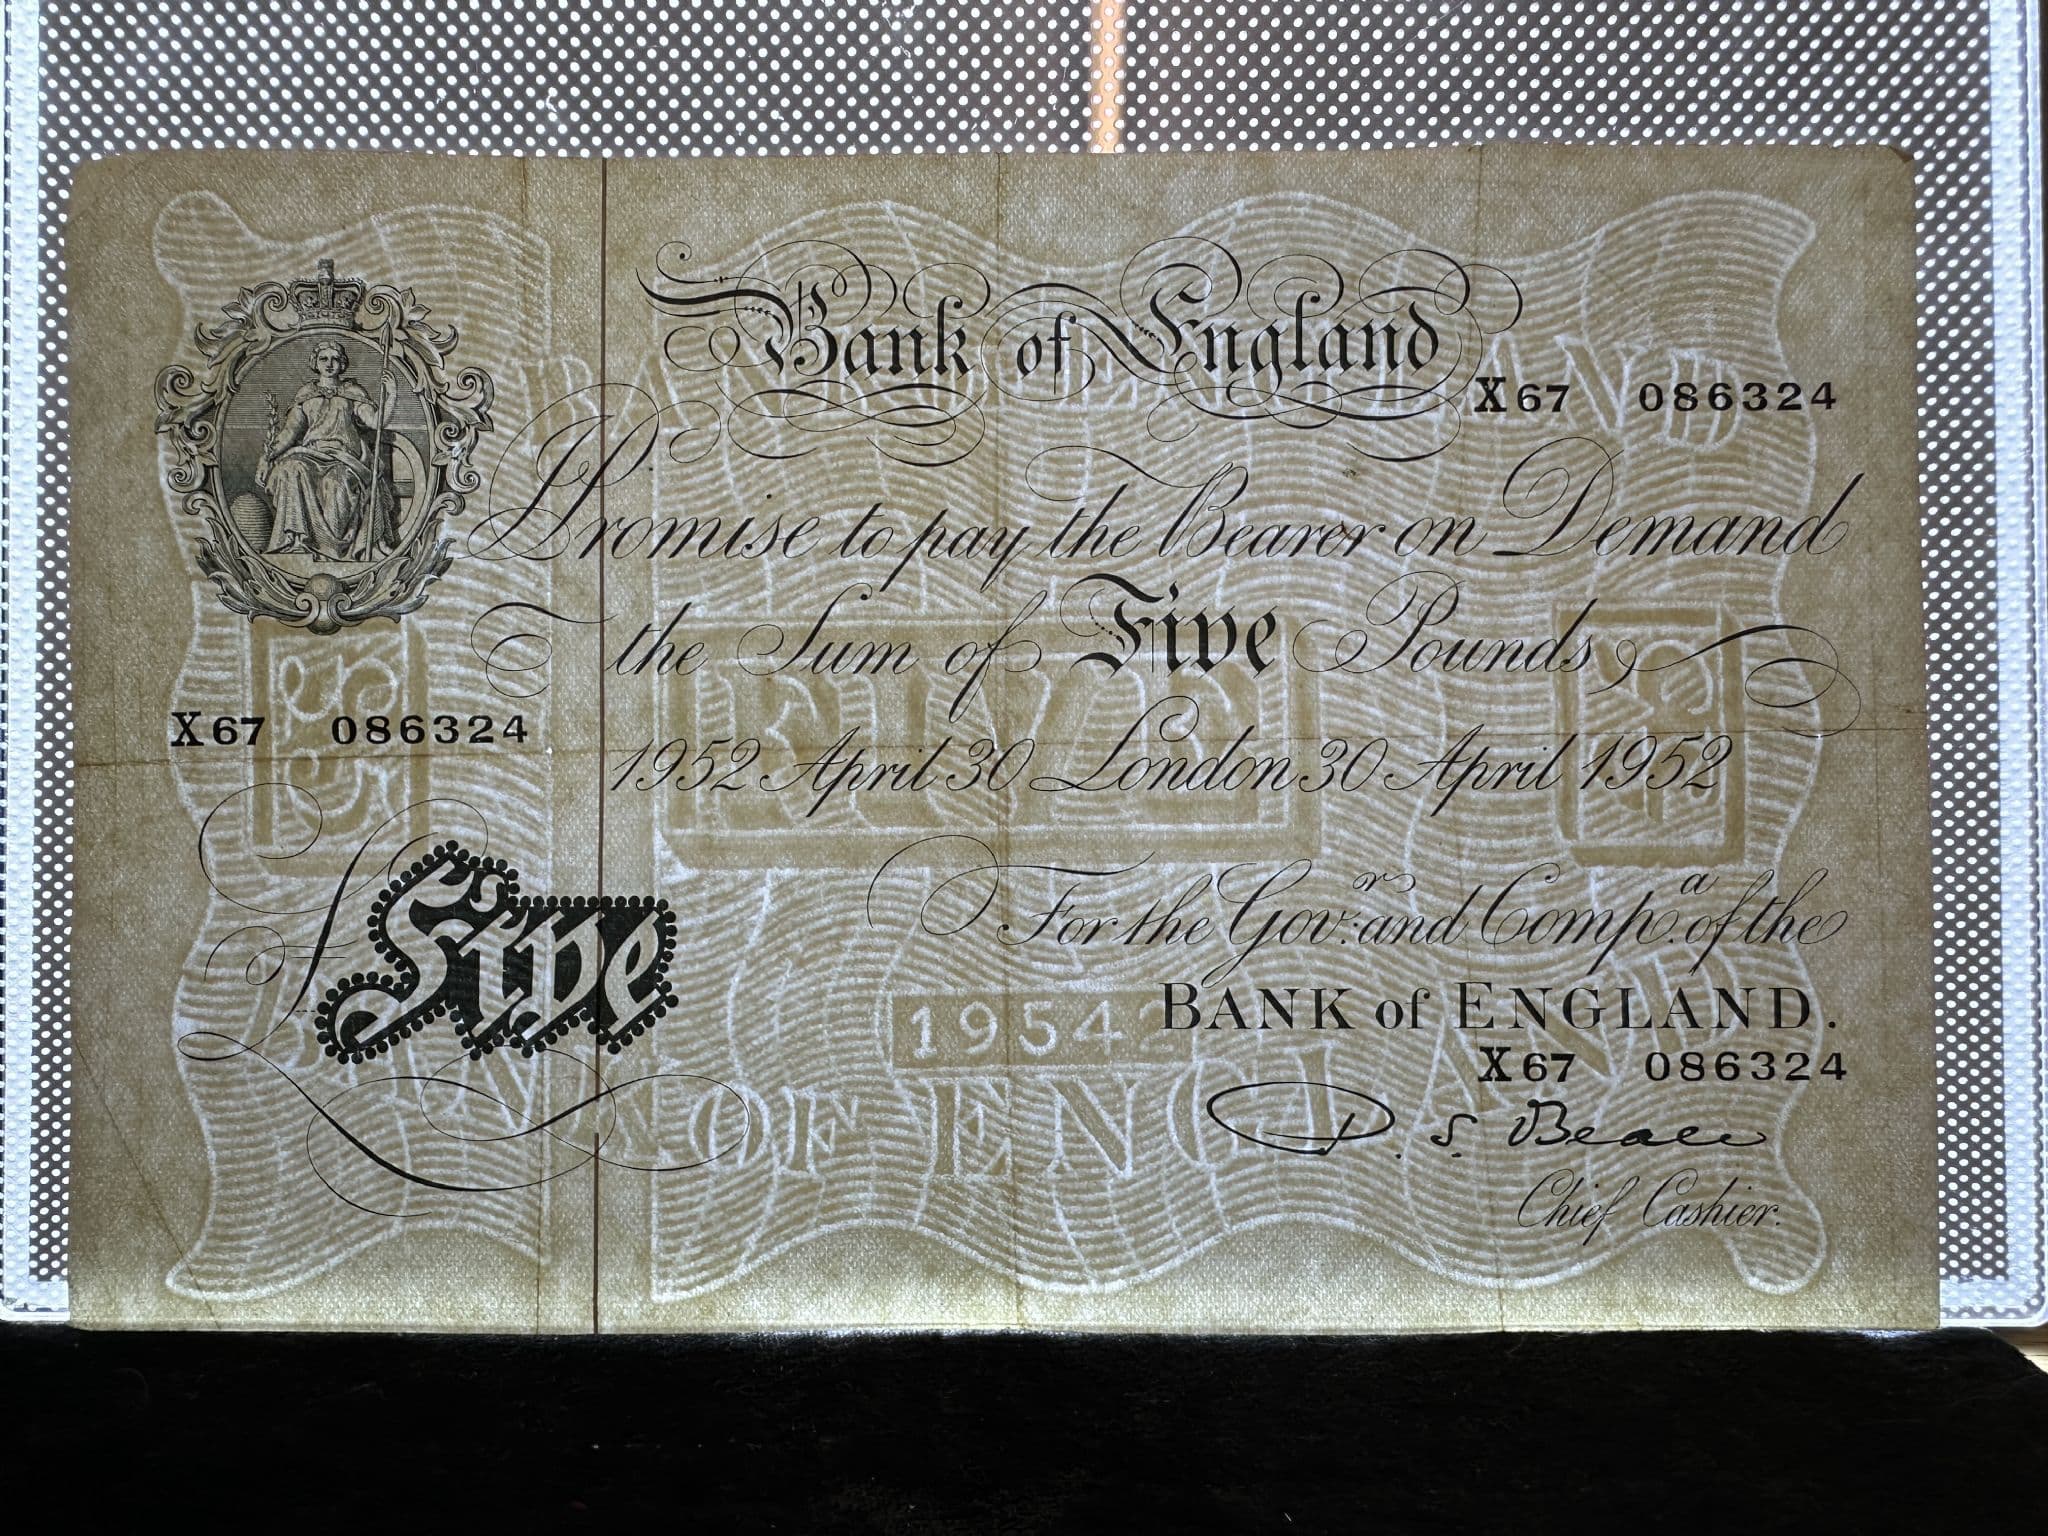 Bank of England
X67 086324
Promise to pay the Bearer on Demand
the Sum of Five Pounds
X67 086324
1952 April 30 London 30 April 1952
£Five
For the Gov.r and Comp.a of the
BANK of ENGLAND.
X67 086324
P. S. Beale
Chief Cashier.
BANK OF ENGLAND
£5
FIVE
£5
19542
BANK OF ENGLAND